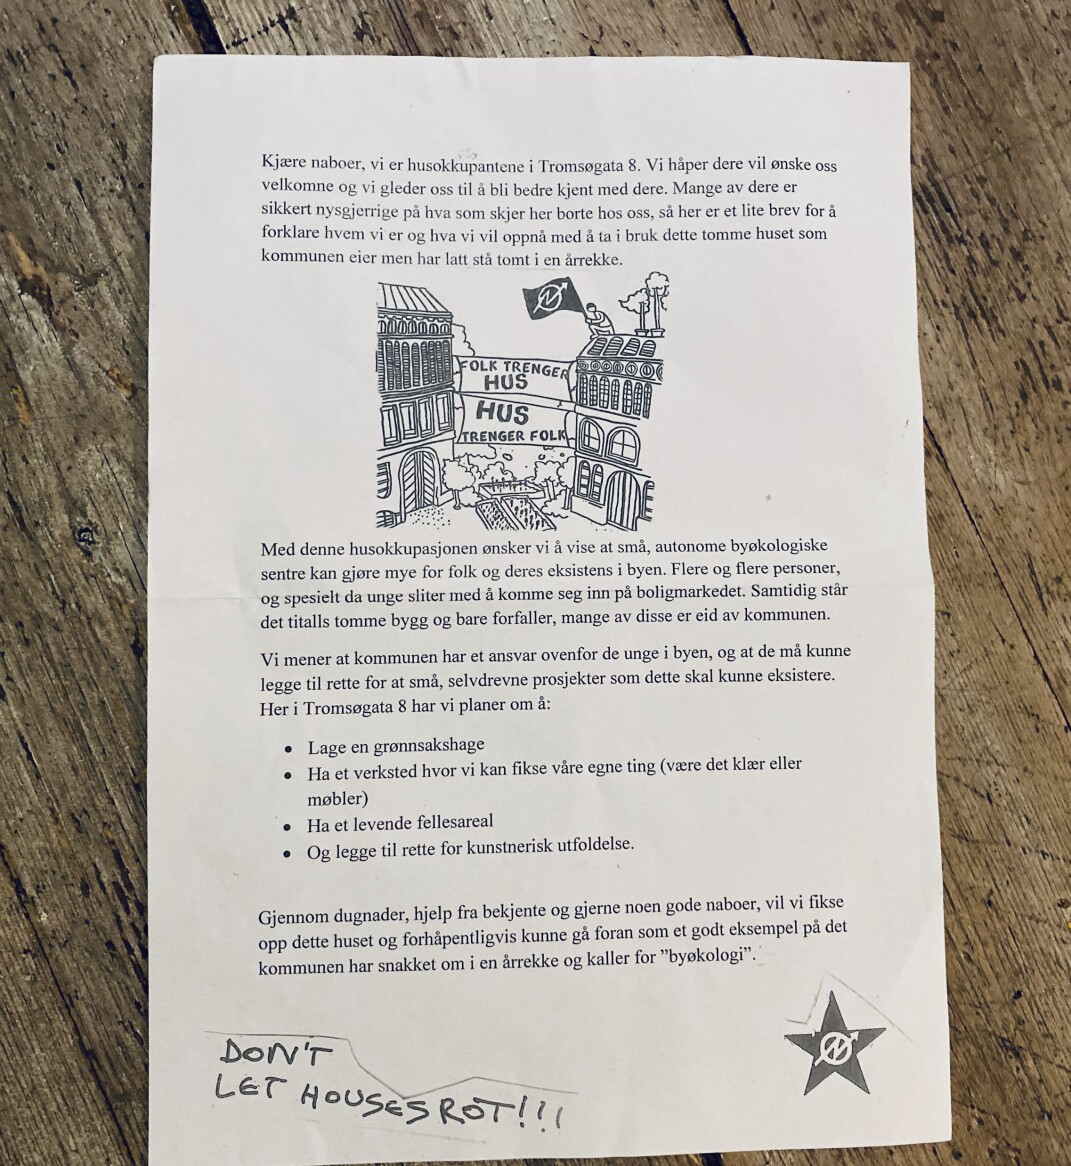 Kjære naboer, vi er husokkupantene i Tromsøgata 8. Vi håper dere vil ønske oss
velkomne og vi gleder oss til å bli bedre kjent med dere. Mange av dere er
sikkert nysgjerrige på hva som skjer her borte hos oss, så her er et lite brev for å
forklare hvem vi er og hva vi vil oppnå med å ta i bruk dette tomme huset som
kommunen eier men har latt stå tomt i en årrekke.
FOLK TRENGER
HUS
HUS
TRENGER FOLK
Med denne husokkupasjonen ønsker vi å vise at små, autonome byøkologiske
sentre kan gjøre mye for folk og deres eksistens i byen. Flere og flere personer,
og spesielt da unge sliter med å komme seg inn på boligmarkedet. Samtidig står
det titalls tomme bygg og bare forfaller, mange av disse er eid av kommunen.
Vi mener at kommunen har et ansvar ovenfor de unge i byen, og at de må kunne
legge til rette for at små, selvdrevne prosjekter som dette skal kunne eksistere.
Her i Tromsøgata 8 har vi planer om å:
• Lage en grønnsakshage
• Ha et verksted hvor vi kan fikse våre egne ting (være det klær eller
møbler)
• Ha et levende fellesareal
• Og legge til rette for kunstnerisk utfoldelse.
Gjennom dugnader, hjelp fra bekjente og gjerne noen gode naboer, vil vi fikse
opp dette huset og forhåpentligvis kunne gå foran som et godt eksempel på det
kommunen har snakket om i en årrekke og kaller for ”byøkologi”.
DON'T
LET HOUSES ROT!!!